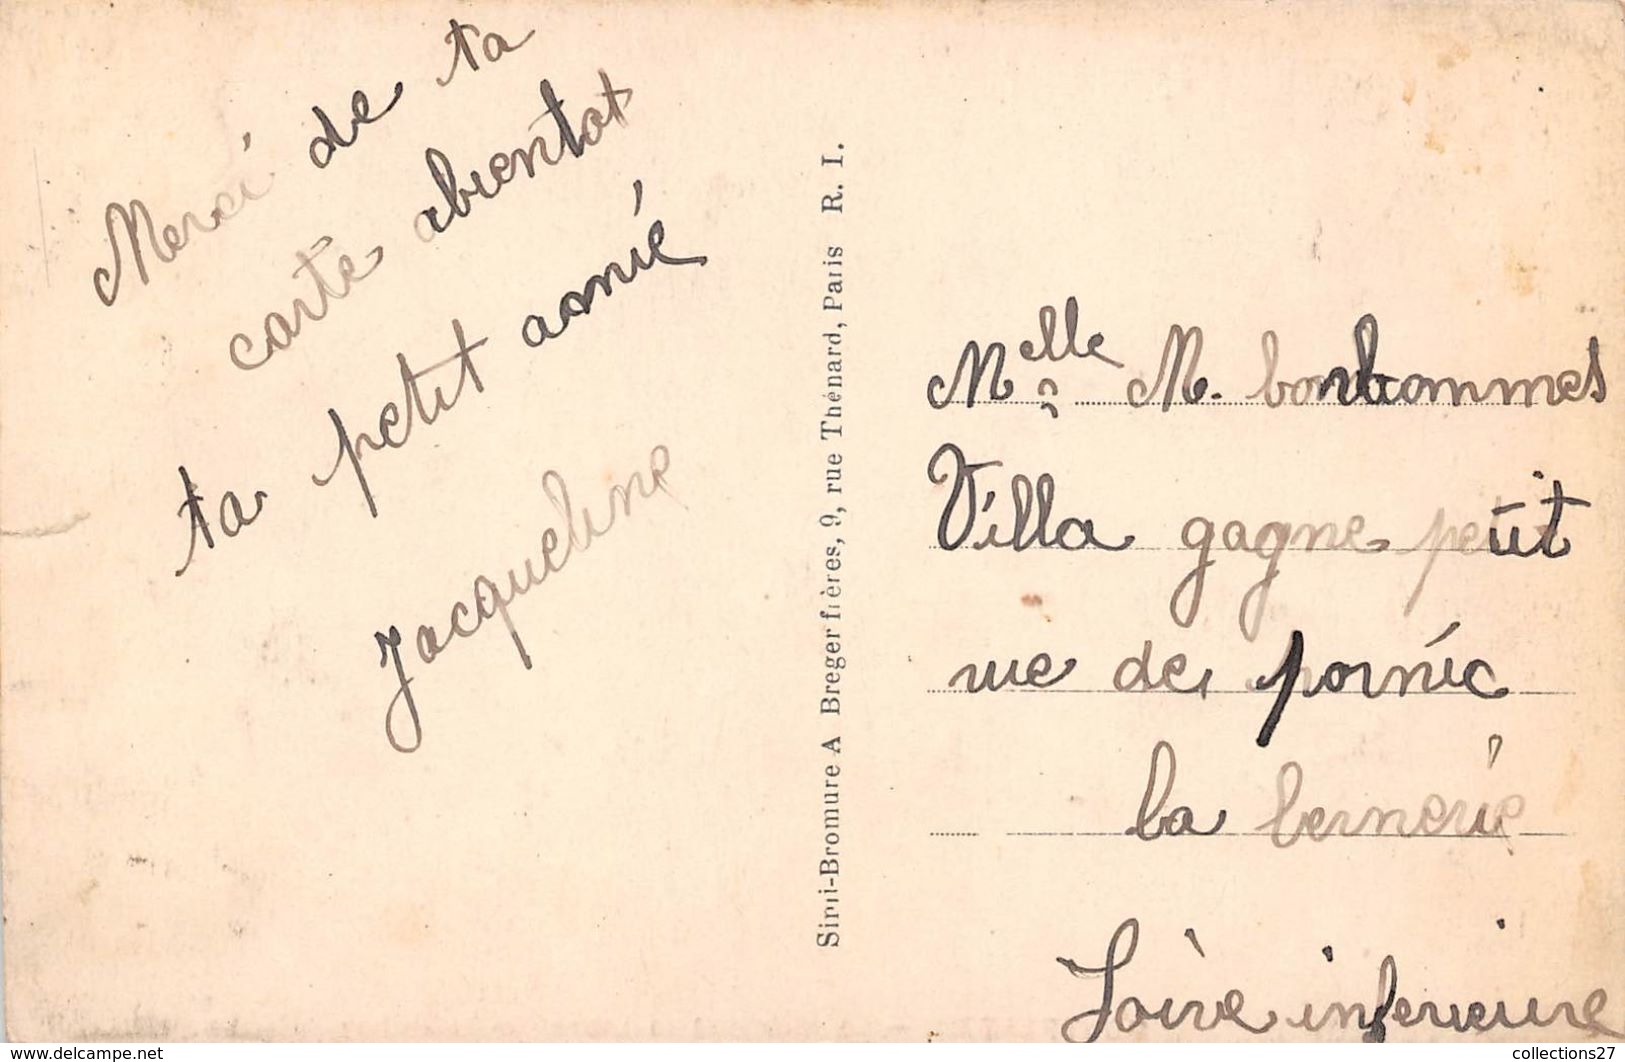 Merci de ta
carte abientot
ta petit amie
Jacqueline
Simili-Bromure A Breger frères, 9, rue Thénard, Paris R. I.
Melle M. bonhommes
Villa gagne petit
rue de pornic
la bernerie
Loire inferieure
www.delcampe.net
collections27